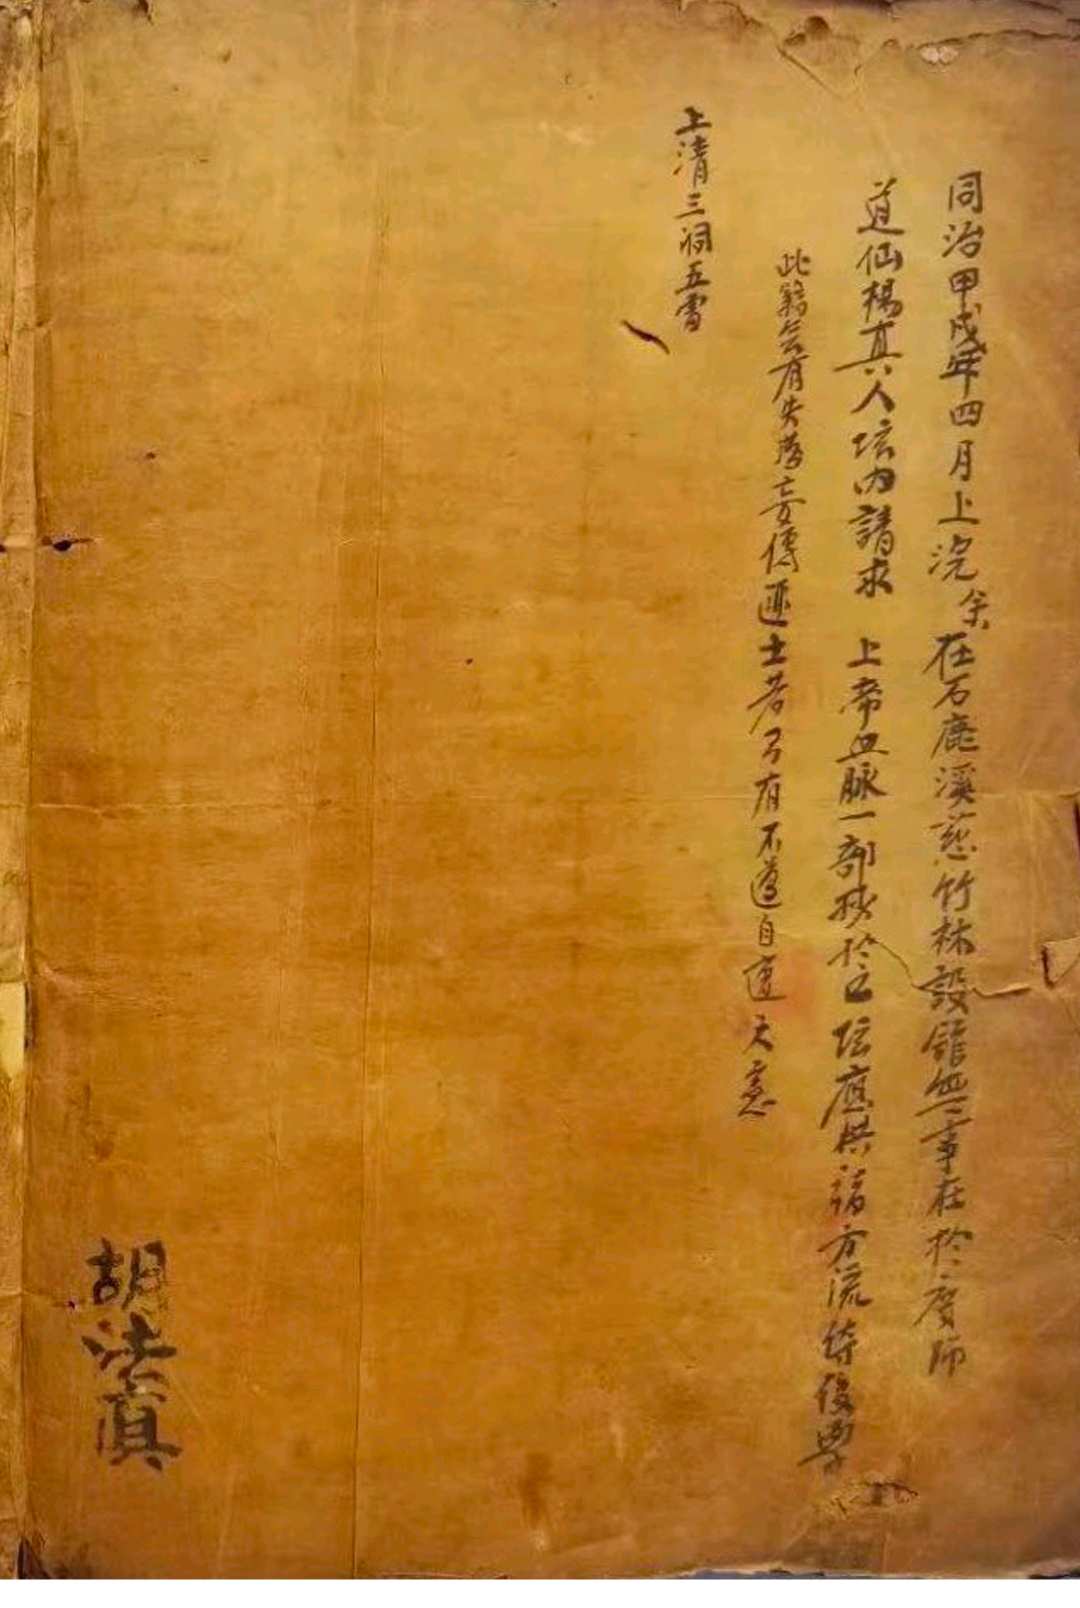 同治甲戌年四月上浣余在石鹿溪慈竹林設館無事在於度師
道仙楊真人坛内請求 上帝血脉一部抄於正坛應供諸方流傳後學
此有失落妄傳匪士若有不遵自遭天
上清三洞五雷
胡法真